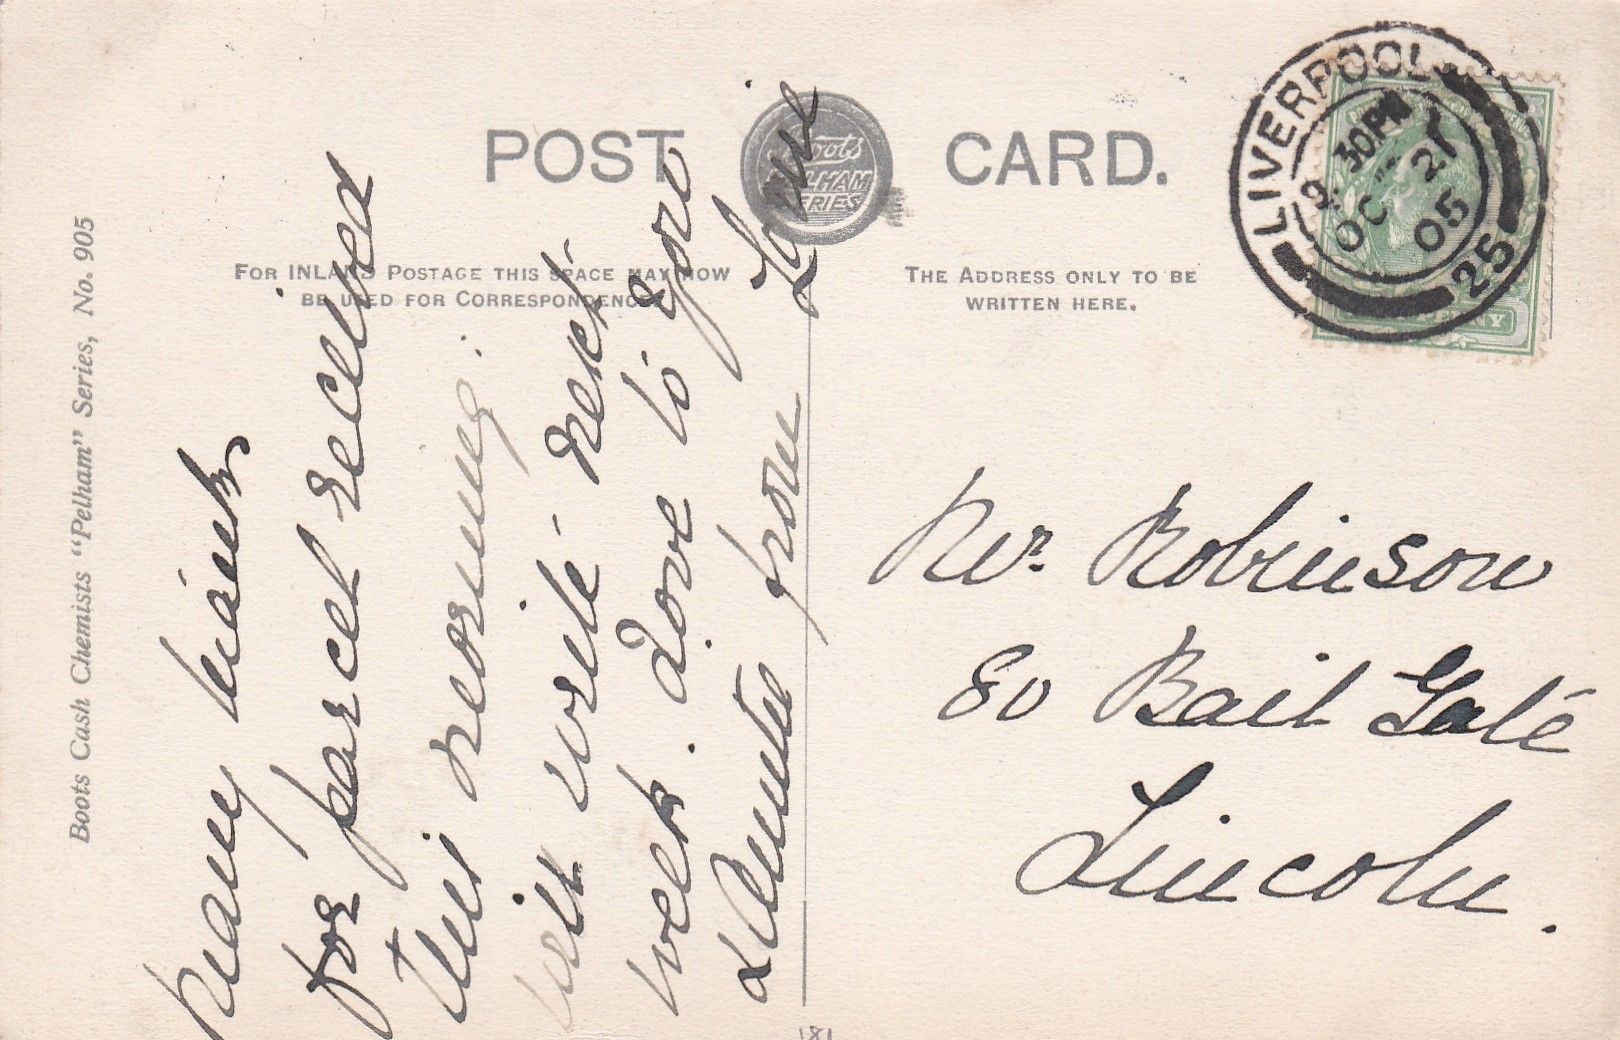 POST CARD.
Boots
PELHAM
SERIES
FOR INLAND POSTAGE THIS SPACE MAY NOW
BE USED FOR CORRESPONDENCE
THE ADDRESS ONLY TO BE
WRITTEN HERE.
LIVERPOOL
9. 30PM
OC 21
05
25
Boots Cash Chemists "Pelham" Series, No. 905
Many thanks
for parcel received
this morning.
Will write next
week. Love to you
& Auntie from
Mr Robinson
80 Bail Gate
Lincoln.
181